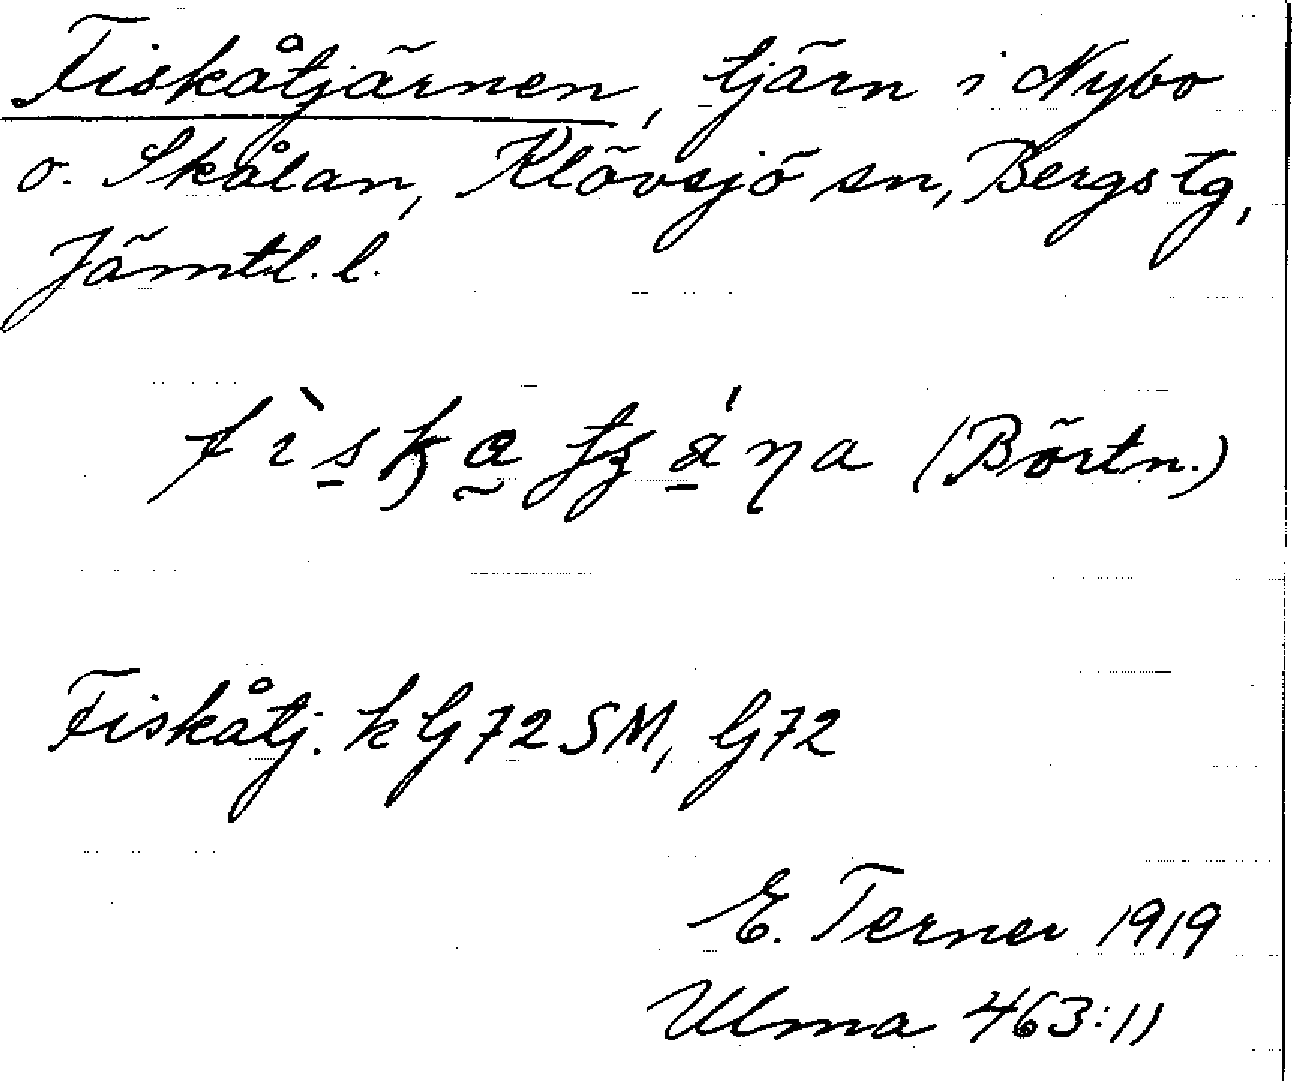 Fiskåtjärnen, tjärn i Nybo
o. Skålan, Klövsjö sn, Bergs tg,
Jämtl. l.
(Börtn.)
Fiskåtj. k G72SM, G72
E. Terner 1919
Ulma 463:11